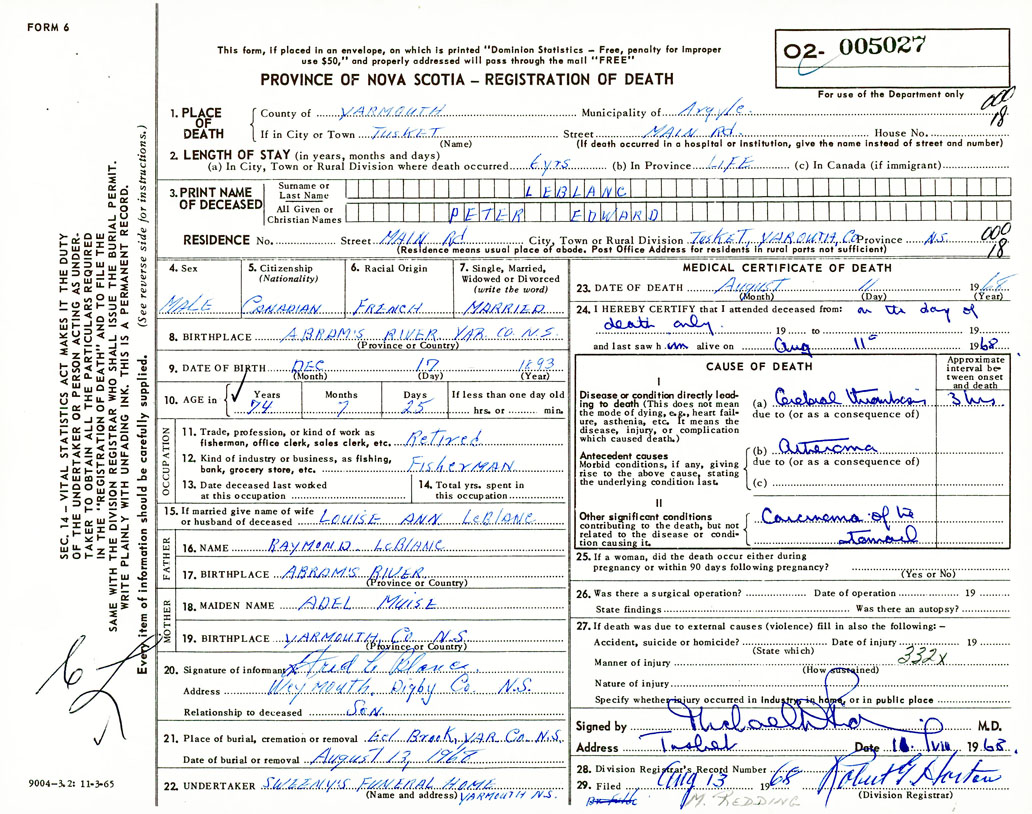 FORM 6
This form, if placed in an envelope, on which is printed "Dominion Statistics – Free, penalty for improper
use $50," and properly addressed will pass through the mail "FREE"
PROVINCE OF NOVA SCOTIA – REGISTRATION OF DEATH
02- 005027
For use of the Department only
000
18
1. PLACE OF DEATH
County of YARMOUTH Municipality of Argyle
If in City or Town TUSKET Street MAIN Rd. House No.
(Name) (If death occurred in a hospital or institution, give the name instead of street and number)
2. LENGTH OF STAY (in years, months and days)
(a) In City, Town or Rural Division where death occurred 6 yrs (b) In Province LIFE (c) In Canada (if immigrant)
3. PRINT NAME OF DECEASED
Surname or Last Name LEBLANC
All Given or Christian Names PETER EDWARD
RESIDENCE No. Street MAIN Rd City, Town or Rural Division TUSKET, YAROUTH, Co Province N.S.
(Residence means usual place of abode. Post Office Address for residents in rural parts not sufficient)
000
18
4. Sex MALE
5. Citizenship (Nationality) CANADIAN
6. Racial Origin FRENCH
7. Single, Married, Widowed or Divorced (write the word) MARRIED
8. BIRTHPLACE ABRAM'S RIVER YAR. CO. N.S.
(Province or Country)
9. DATE OF BIRTH DEC 17 1893
(Month) (Day) (Year)
10. AGE in Years 74 Months 7 Days 25 If less than one day old hrs. or min.
OCCUPATION
11. Trade, profession, or kind of work as fisherman, office clerk, sales clerk, etc. Retired
12. Kind of industry or business, as fishing, bank, grocery store, etc. FISHERMAN
13. Date deceased last worked at this occupation
14. Total yrs. spent in this occupation
15. If married give name of wife or husband of deceased LOUISE ANN LEBLANC
FATHER
16. NAME RAYMOND LEBLANC
17. BIRTHPLACE ABRAM'S RIVER
(Province or Country)
MOTHER
18. MAIDEN NAME ADEL MUISE
19. BIRTHPLACE YARMOUTH, Co. N.S.
(Province or Country)
20. Signature of informant X Le Blanc
Address Weymouth, Digby Co. N.S.
Relationship to deceased Son.
21. Place of burial, cremation or removal Eel Brook, YAR Co. N.S.
Date of burial or removal August 13, 1968
22. UNDERTAKER SWEENY'S FUNERAL HOME
(Name and address) YARMOUTH N.S.
MEDICAL CERTIFICATE OF DEATH
23. DATE OF DEATH August 11 1968
(Month) (Day) (Year)
24. I HEREBY CERTIFY that I attended deceased from: on the day of
death only. 19 to 19
and last saw him alive on Aug 11 1968
CAUSE OF DEATH
Approximate interval between onset and death
I
Disease or condition directly leading to death (This does not mean the mode of dying, e.g., heart failure, asthenia, etc. It means the disease, injury, or complication which caused death.)
(a) Cerebral thrombosis 3 hrs.
due to (or as a consequence of)
Antecedent causes
Morbid conditions, if any, giving rise to the above cause, stating the underlying condition last.
(b) Atheroma
due to (or as a consequence of)
(c)
II
Other significant conditions contributing to the death, but not related to the disease or condition causing it.
Carcinoma of the
stomach
25. If a woman, did the death occur either during
pregnancy or within 90 days following pregnancy?
(Yes or No)
26. Was there a surgical operation? Date of operation 19
State findings Was there an autopsy?
27. If death was due to external causes (violence) fill in also the following: –
Accident, suicide or homicide? Date of injury 19
(State which) 332x
Manner of injury
(How sustained)
Nature of injury
Specify whether injury occurred in Industry, in home, or in public place
Signed by Michael M.D.
Address Tusket Date VIII 1968.
28. Division Registrar's Record Number
29. Filed Aug 13 1968 Robert G Horton
(Division Registrar)
M. REDDING
SEC. 14 – VITAL STATISTICS ACT MAKES IT THE DUTY
OF THE UNDERTAKER OR PERSON ACTING AS UNDER-
TAKER TO OBTAIN ALL THE PARTICULARS REQUIRED
IN THE "REGISTRATION OF DEATH" AND TO FILE THE
SAME WITH THE DIVISION REGISTRAR WHO SHALL ISSUE THE BURIAL PERMIT.
WRITE PLAINLY WITH UNFADING INK. THIS IS A PERMANENT RECORD.
Every item of information should be carefully supplied. (See reverse side for instructions.)
9004-3.2: 11-3-65